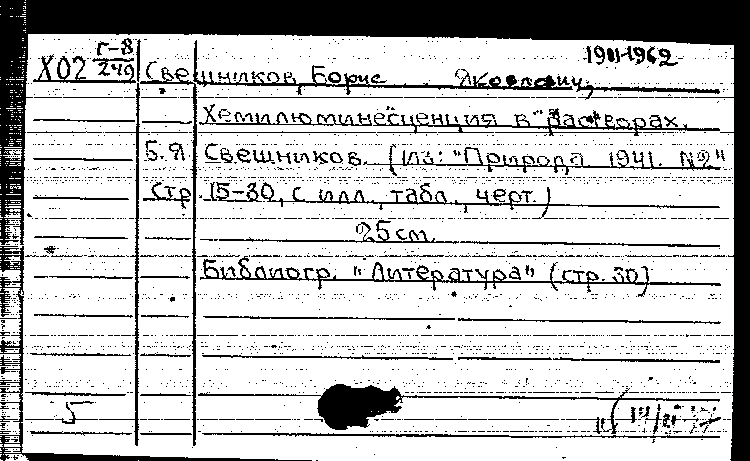 Г-8 1901-1962
Х02 249 Свешников, Борис Яковлевич,
Хемилюминесценция в растворах.
Б.Я. Свешников. (Из: "Природа 1941. №2"
стр. 15-30, с илл., табл., черт.)
25 см.
Библиогр. "Литература" (стр. 30)
5